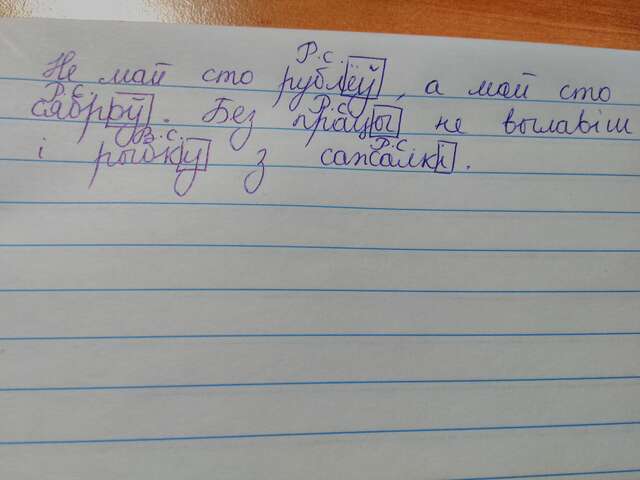 Р.с.
Не май сто рублёў, а май сто
Р.с. Р.с.
сяброў. Без працы не вылавіш
В.с. Р.с.
і рыбку з сажалкі.